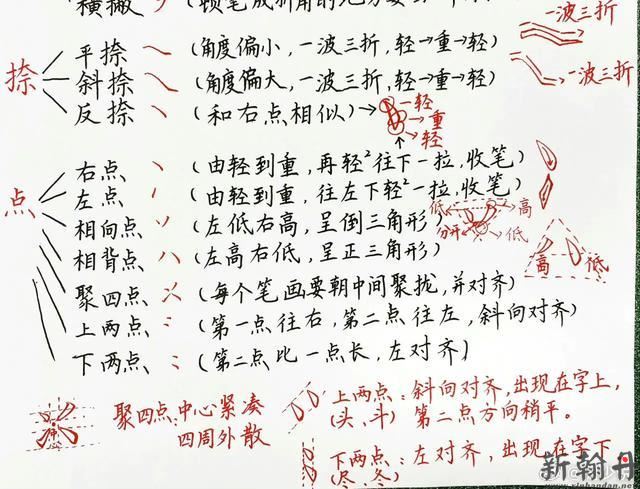 横撇
一波三折
捺
平捺 (角度偏小,一波三折,轻→重→轻)
斜捺 (角度偏大,一波三折,轻→重→轻)
一波三折
反捺 (和右点相似)→
轻
重
轻
点
右点 (由轻到重,再轻轻往下一拉,收笔)
左点 (由轻到重,往左下轻轻一拉,收笔)
相向点 (左低右高,呈倒三角形)
低 高
分开 低
相背点 (左高右低,呈正三角形)
高 低
聚四点 (每个笔画要朝中间聚拢,并对齐)
上两点 (第一点往右,第二点往左,斜向对齐)
下两点 (第二点比一点长,左对齐)
聚四点:中心紧凑
四周外散
上两点:斜向对齐,出现在字上,
(头、斗) 第二点方向稍平。
下两点:左对齐,出现在字下
(尽、冬)
新翰丹